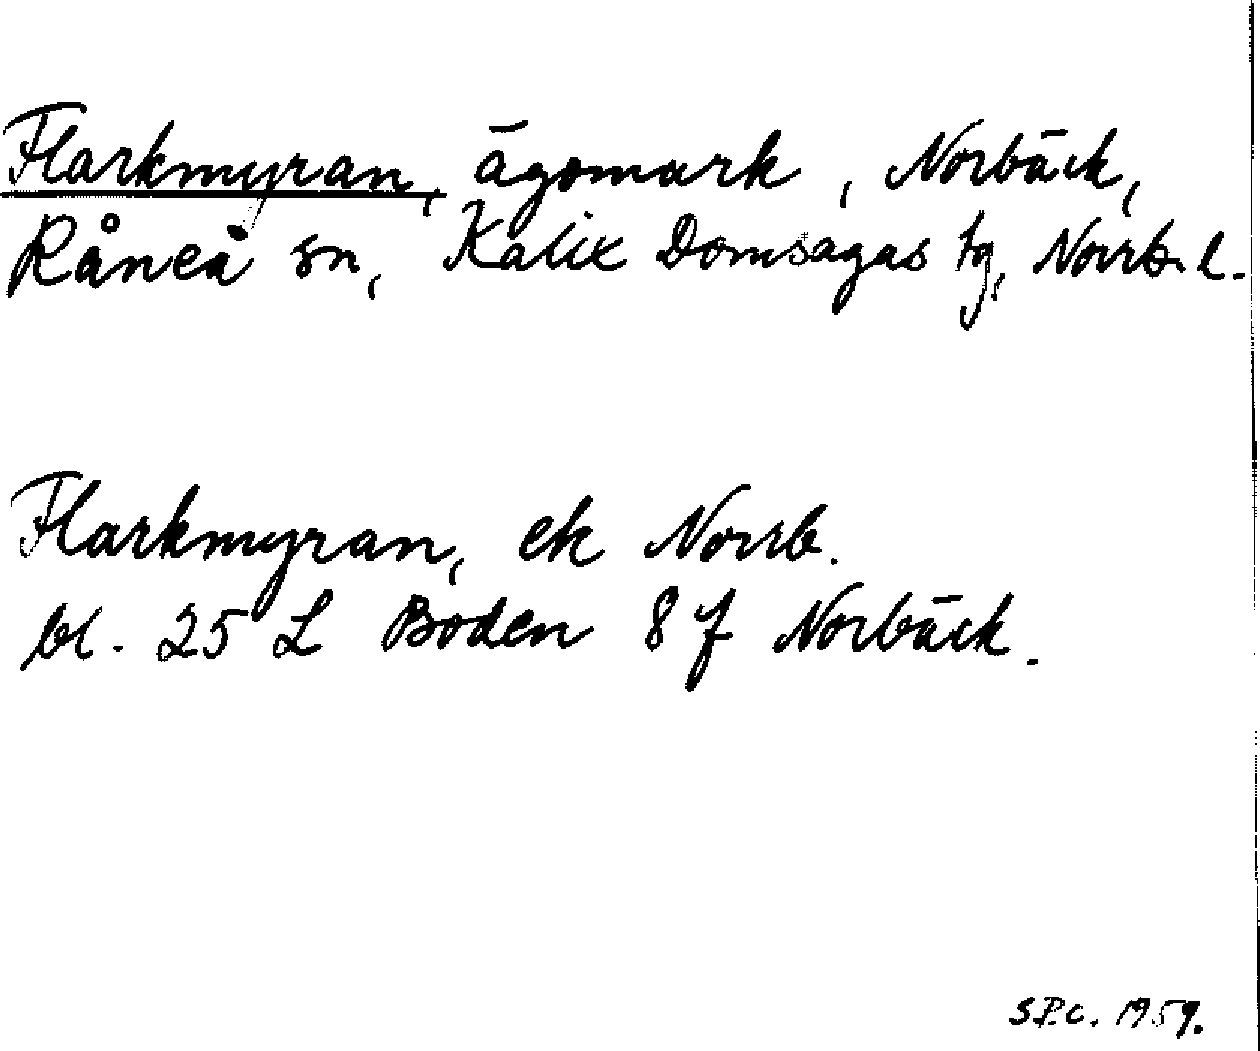 Flarkmyran, ägomark, Norbäck,
Råneå sn, Kalix Domsagas tg, Norrb. l.
Flarkmyran, ek Norrb.
bl. 25 L Boden 8 f Norbäck.
S.P.C. 1959.